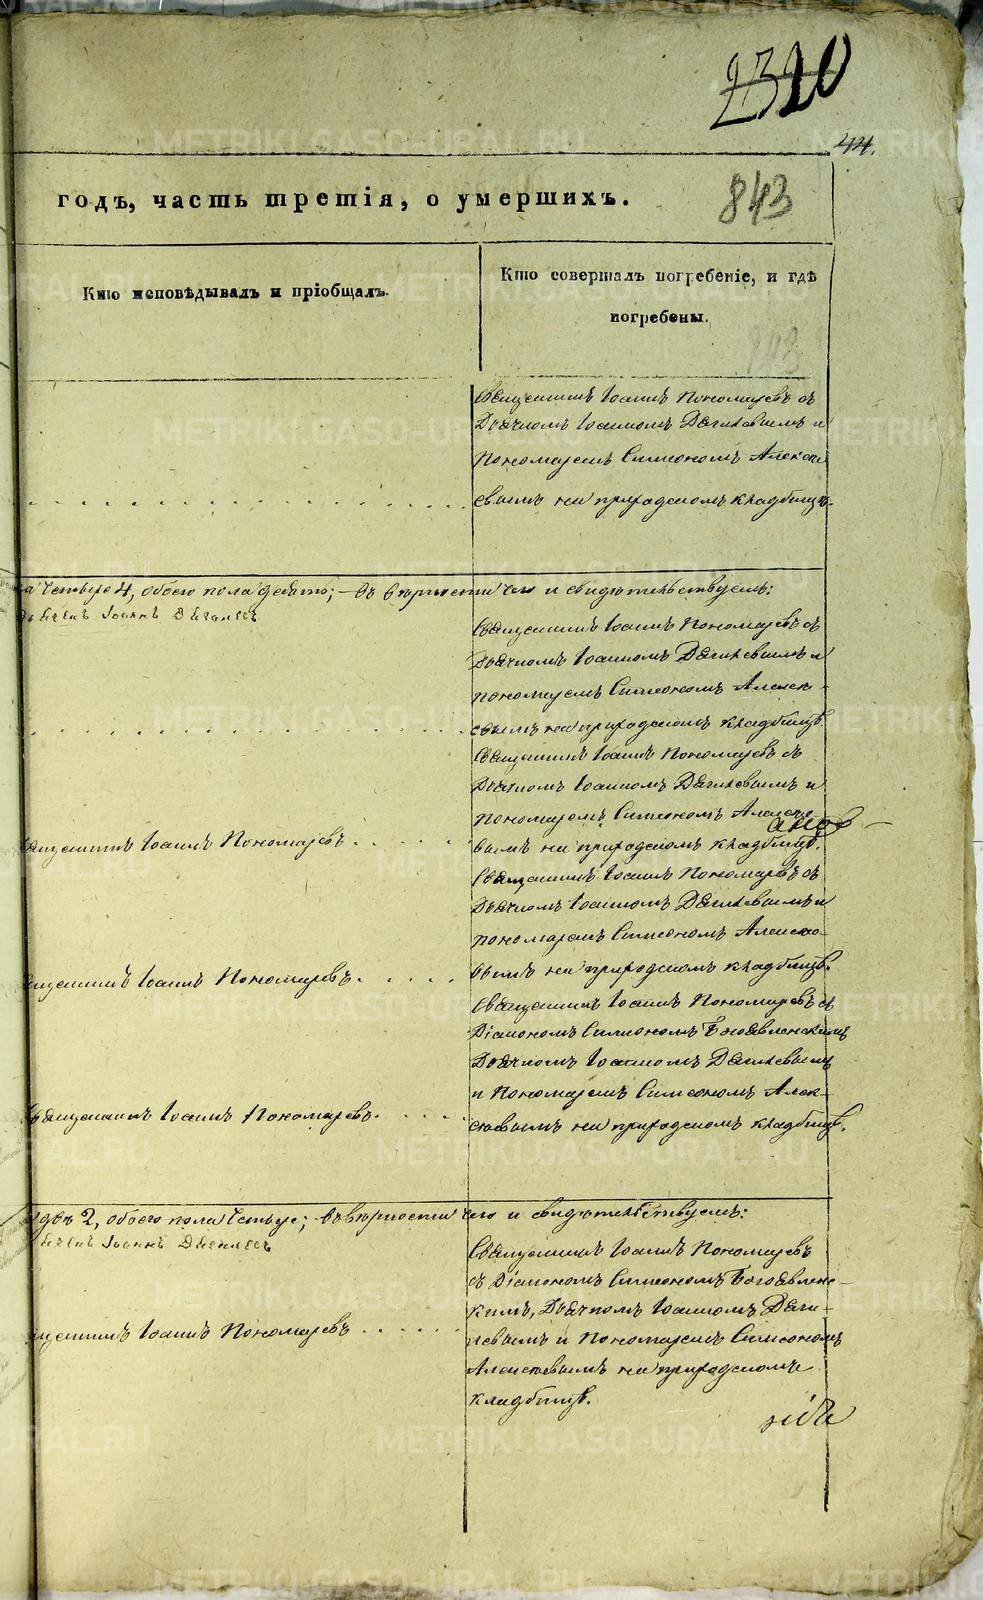 2320
44.
годъ, часть третія, о умершихъ.
843
Кто исповѣдывалъ и пріобщалъ.
Кто совершалъ погребеніе, и гдѣ
погребены.
Священникъ Іоаннъ Пономаревъ съ
Дьячкомъ Іоанномъ Дягилевымъ и
Пономаремъ Симеономъ Алексѣ
евымъ на приходскомъ кладбищѣ.
четыре 4, обоего пола девять; – въ вѣрности чего и свидѣтельствуемъ:
Іоаннъ Дягилевъ
Священникъ Іоаннъ Пономаревъ съ
Дьячкомъ Іоанномъ Дягилевымъ и
пономаремъ Симеономъ Алексѣ-
евымъ на приходскомъ кладбищѣ.
Священникъ Іоаннъ Пономаревъ съ
Дьячкомъ Іоанномъ Дягилевымъ и
пономаремъ Симеономъ Алексѣе
Іоаннъ Пономаревъ
вымъ на приходскомъ кладбищѣ.
Священникъ Іоаннъ Пономаревъ съ
Дьячкомъ Іоанномъ Дягилевымъ и
пономаремъ Симеономъ Алексѣе-
Іоаннъ Пономаревъ
вымъ на приходскомъ кладбищѣ.
Священникъ Іоаннъ Пономаревъ съ
Діакономъ Симеономъ Богоявленскимъ
Дьячкомъ Іоанномъ Дягилевымъ
и Пономаремъ Симеономъ Алек-
Священникъ Іоаннъ Пономаревъ.
сѣевымъ на приходскомъ кладбищѣ.
двѣ 2, обоего пола четыре; – въ вѣрности чего и свидѣтельствуемъ:
Іоаннъ Дягилевъ
Священникъ Іоаннъ Пономаревъ
съ Діакономъ Симеономъ Богоявленс-
кимъ, Дьячкомъ Іоанномъ Дяги-
Іоаннъ Пономаревъ
левымъ и Пономаремъ Симеономъ
Алексѣевымъ на приходскомъ
кладбищѣ.
METRIKI.GASO-URAL.RU